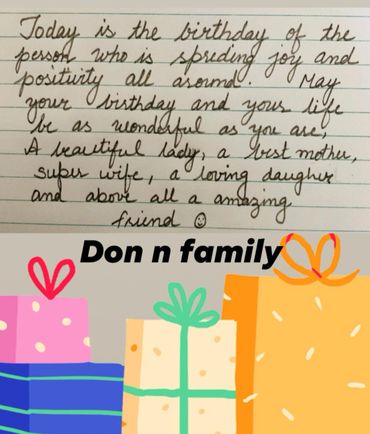 Today is the birthday of the
person who is spreding joy and
positivity all around. May
your birthday and your life
be as wonderful as you are,
A beautiful lady, a best mother,
super wife, a loving daugher
and above all a amazing
friend ☺
Don n family